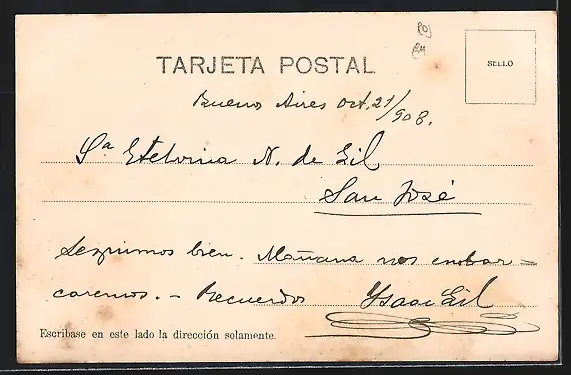 TARJETA POSTAL
SELLO
Buenos Aires Oct. 21/908.
Sª Etelvina N. de Gil
San José
Seguimos bien. Mañana nos embar=
caremos. - Recuerdos Ysaac Gil
Escribase en este lado la dirección solamente.